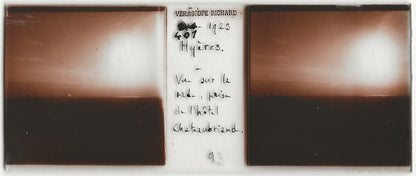 VÉRASCOPE RICHARD
1923
401
Hyères.
Vue sur la
rade, prise
de l'hôtel
Chateaubriand.
93